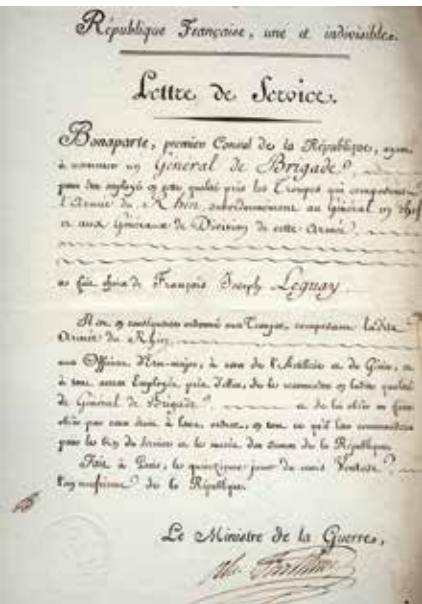 République Française, une et indivisible.
Lettre de Service.
Bonaparte, premier Consul de la République, ayant
à nommer un Général de Brigade,
pour être employé en cette qualité près les Troupes qui composent
l'Armée du Rhin, subordonnément au Général en chef
et aux Généraux de Division de cette Armée,
a fait choix de François Joseph Leguay.
Il est en conséquence ordonné aux Troupes composant ladite
Armée du Rhin,
aux Officiers d'Etat-major, à ceux de l'Artillerie et du Génie, et
à tous autres Employés près d'elles, de le reconnoître en ladite qualité
de Général de Brigade, et de lui obéir ou faire
obéir par ceux étant à leurs ordres, en tout ce qu'il leur commandera
pour le bien du service et le succès des armes de la République.
Fait à Paris, le quinzième jour du mois Ventose,
l'an de la République.
Le Ministre de la Guerre,